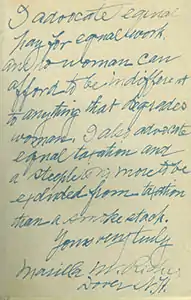 I advocate equal
pay for equal work,
and no woman can
afford to be indifferent
to anything that degrades
woman. I also advocate
equal taxation and
a steeple no more to be
excluded from taxation
than a smoke stack.
Yours very truly
Marilla M. Ricker
Dover N.H.